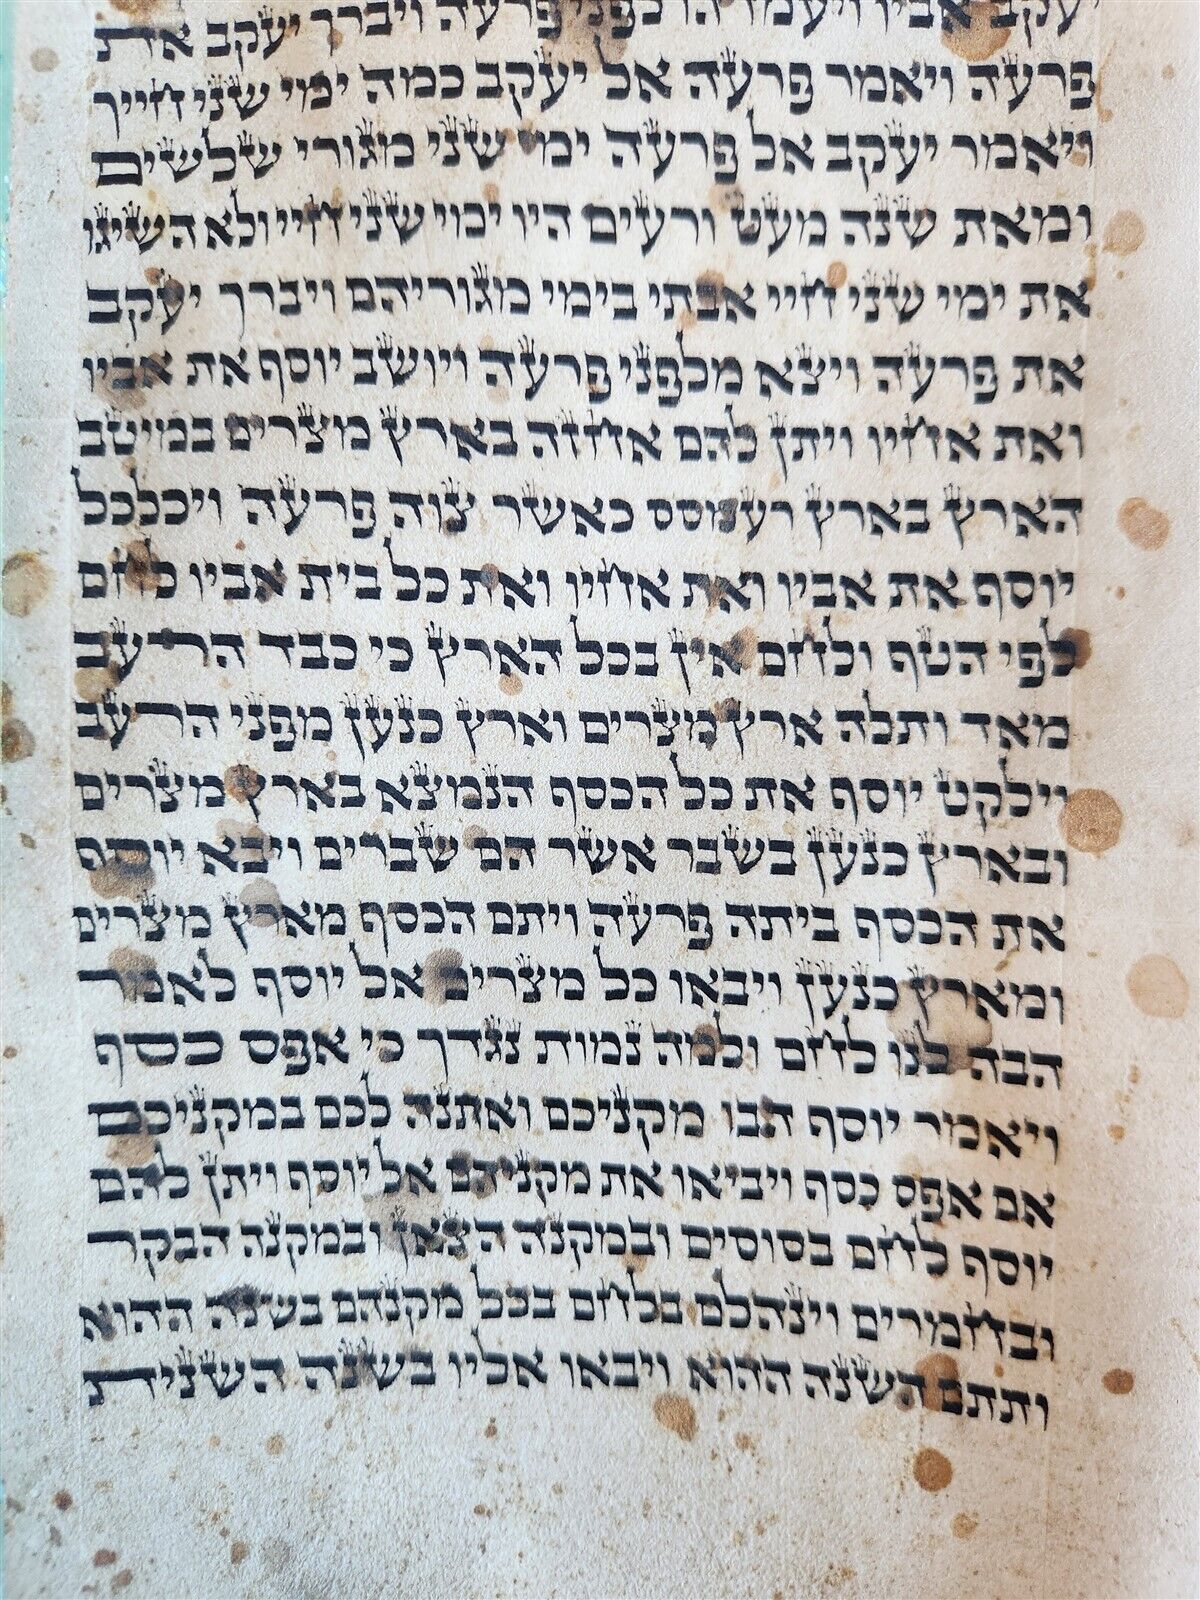 יעקב אביו ויעמדהו לפני פרעה ויברך יעקב את
פרעה ויאמר פרעה אל יעקב כמה ימי שני חייך
ויאמר יעקב אל פרעה ימי שני מגורי שלשים
ומאת שנה מעט ורעים היו ימי שני חיי ולא השיגו
את ימי שני חיי אבתי בימי מגוריהם ויברך יעקב
את פרעה ויצא מלפני פרעה ויושב יוסף את אביו
ואת אחיו ויתן להם אחזה בארץ מצרים במיטב
הארץ בארץ רעמסס כאשר צוה פרעה ויכלכל
יוסף את אביו ואת אחיו ואת כל בית אביו לחם
לפי הטף ולחם אין בכל הארץ כי כבד הרעב
מאד ותלה ארץ מצרים וארץ כנען מפני הרעב
וילקט יוסף את כל הכסף הנמצא בארץ מצרים
ובארץ כנען בשבר אשר הם שברים ויבא יוסף
את הכסף ביתה פרעה ויתם הכסף מארץ מצרים
ומארץ כנען ויבאו כל מצרים אל יוסף לאמר
הבה לנו לחם ולמה נמות נגדך כי אפס כסף
ויאמר יוסף הבו מקניכם ואתנה לכם במקניכם
אם אפס כסף ויביאו את מקניהם אל יוסף ויתן להם
יוסף לחם בסוסים ובמקנה הצאן ובמקנה הבקר
ובחמרים וינהלם בלחם בכל מקנהם בשנה ההוא
ותתם השנה ההוא ויבאו אליו בשנה השנית